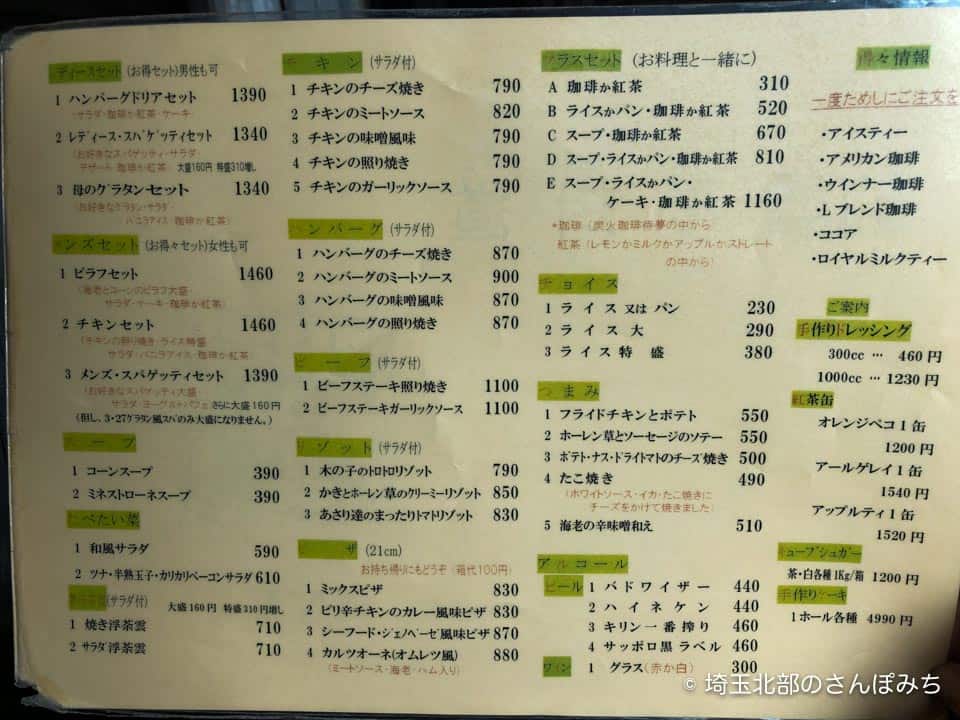 ディースセット (お得セット)男性も可
1 ハンバーグドリアセット 1390
(サラダ・珈琲か紅茶・ケーキ)
2 レディース・スパゲッティセット 1340
(お好きなスパゲッティ・サラダ・
デザート・珈琲か紅茶) 大盛160円 特盛310増し
3 母のグラタンセット 1340
(お好きなグラタン・サラダ・
バニラアイス・珈琲か紅茶)
ンズセット (お得々セット)女性も可
1 ピラフセット 1460
(海老とコーンのピラフ大盛
サラダ・ケーキ・珈琲か紅茶)
2 チキンセット 1460
(チキンの照り焼き・ライス特盛
サラダ・バニラアイス・珈琲か紅茶)
3 メンズ・スパゲッティセット 1390
(お好きなスパゲッティ大盛
サラダ・ヨーグルトパフェ)さらに大盛160円
(但し、3・27グラタン風スパのみ大盛になりません。)
ープ
1 コーンスープ 390
2 ミネストローネスープ 390
たべたい菜
1 和風サラダ 590
2 ツナ・半熟玉子・カリカリベーコンサラダ 610
(サラダ付) 大盛160円 特盛310円増し
1 焼き浮茶雲 710
2 サラダ浮茶雲 710
チキン (サラダ付)
1 チキンのチーズ焼き 790
2 チキンのミートソース 820
3 チキンの味噌風味 790
4 チキンの照り焼き 790
5 チキンのガーリックソース 790
ハンバーグ (サラダ付)
1 ハンバーグのチーズ焼き 870
2 ハンバーグのミートソース 900
3 ハンバーグの味噌風味 870
4 ハンバーグの照り焼き 870
ビーフ (サラダ付)
1 ビーフステーキ照り焼き 1100
2 ビーフステーキガーリックソース 1100
リゾット (サラダ付)
1 木の子のトロトロリゾット 790
2 かきとホーレン草のクリーミーリゾット 850
3 あさり達のまったりトマトリゾット 830
ザ (21cm)
お持ち帰りにもどうぞ (箱代100円)
1 ミックスピザ 830
2 ピリ辛チキンのカレー風味ピザ 830
3 シーフード・ジェノベーゼ風味ピザ 870
4 カルツオーネ(オムレツ風) 880
(ミートソース・海老・ハム入り)
プラスセット (お料理と一緒に)
A 珈琲か紅茶 310
B ライスかパン・珈琲か紅茶 520
C スープ・珈琲か紅茶 670
D スープ・ライスかパン・珈琲か紅茶 810
E スープ・ライスかパン・
ケーキ・珈琲か紅茶 1160
*珈琲 (炭火珈琲待夢の中から)
紅茶 (レモンかミルクかアップルかストレート
の中から)
チョイス
1 ライス 又は パン 230
2 ライス 大 290
3 ライス 特盛 380
つまみ
1 フライドチキンとポテト 550
2 ホーレン草とソーセージのソテー 550
3 ポテト・ナス・ドライトマトのチーズ焼き 500
4 たこ焼き 490
(ホワイトソース・イカ・たこ焼きに
チーズをかけて焼きました)
5 海老の辛味噌和え 510
アルコール
ビール 1 バドワイザー 440
2 ハイネケン 440
3 キリン一番搾り 460
4 サッポロ黒ラベル 460
ワイン 1 グラス(赤か白) 300
得々情報
一度ためしにご注文を
・アイスティー
・アメリカン珈琲
・ウインナー珈琲
・Lブレンド珈琲
・ココア
・ロイヤルミルクティー
ご案内
手作りドレッシング
300cc … 460円
1000cc … 1230円
紅茶缶
オレンジペコ1缶
1200円
アールグレイ1缶
1540円
アップルティ1缶
1520円
キューブシュガー
茶・白各種1Kg/箱 1200円
手作りケーキ
1ホール各種 4990円
© 埼玉北部のさんぽみち